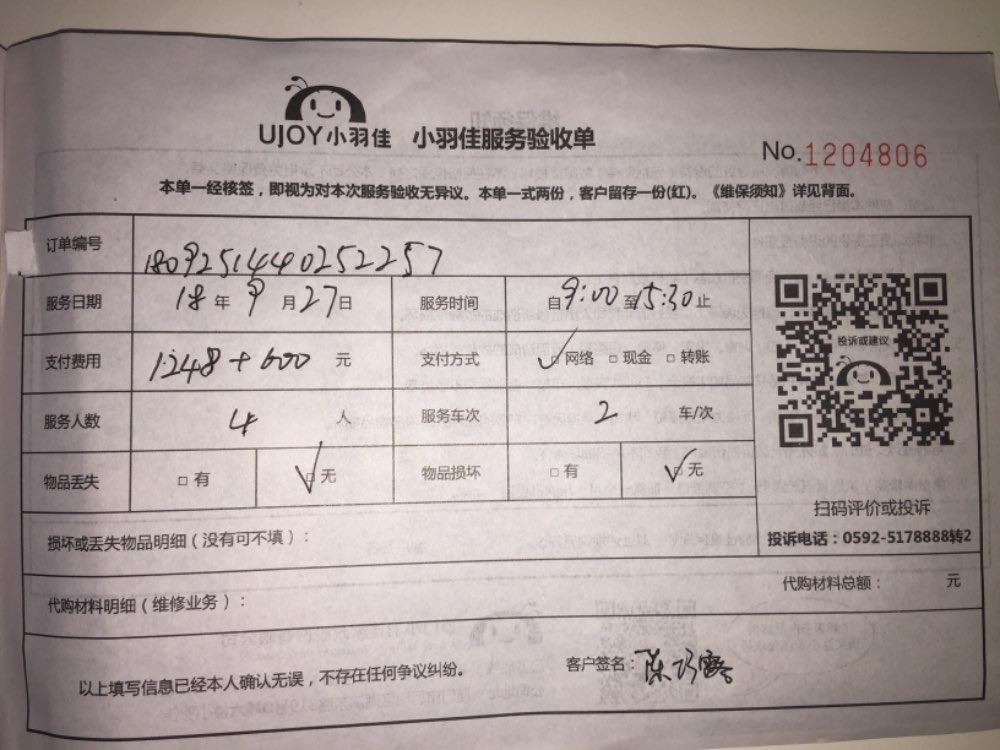 UJOY小羽佳 小羽佳服务验收单
No.1204806
本单一经核签，即视为对本次服务验收无异议。本单一式两份，客户留存一份(红)。《维保须知》详见背面。
订单编号 180925144025225​7
服务日期 18年9月27日 服务时间 自9:00至15:30止
支付费用 1248+600元 支付方式 ✓网络 □现金 □转账
投诉或建议
服务人数 4人 服务车次 2车/次
物品丢失 □有 ✓无 物品损坏 □有 ✓无
扫码评价或投诉
损坏或丢失物品明细（没有可不填）：
投诉电话：0592-5178888转2
代购材料明细（维修业务）： 代购材料总额： 元
以上填写信息已经本人确认无误，不存在任何争议纠纷。 客户签名：陈